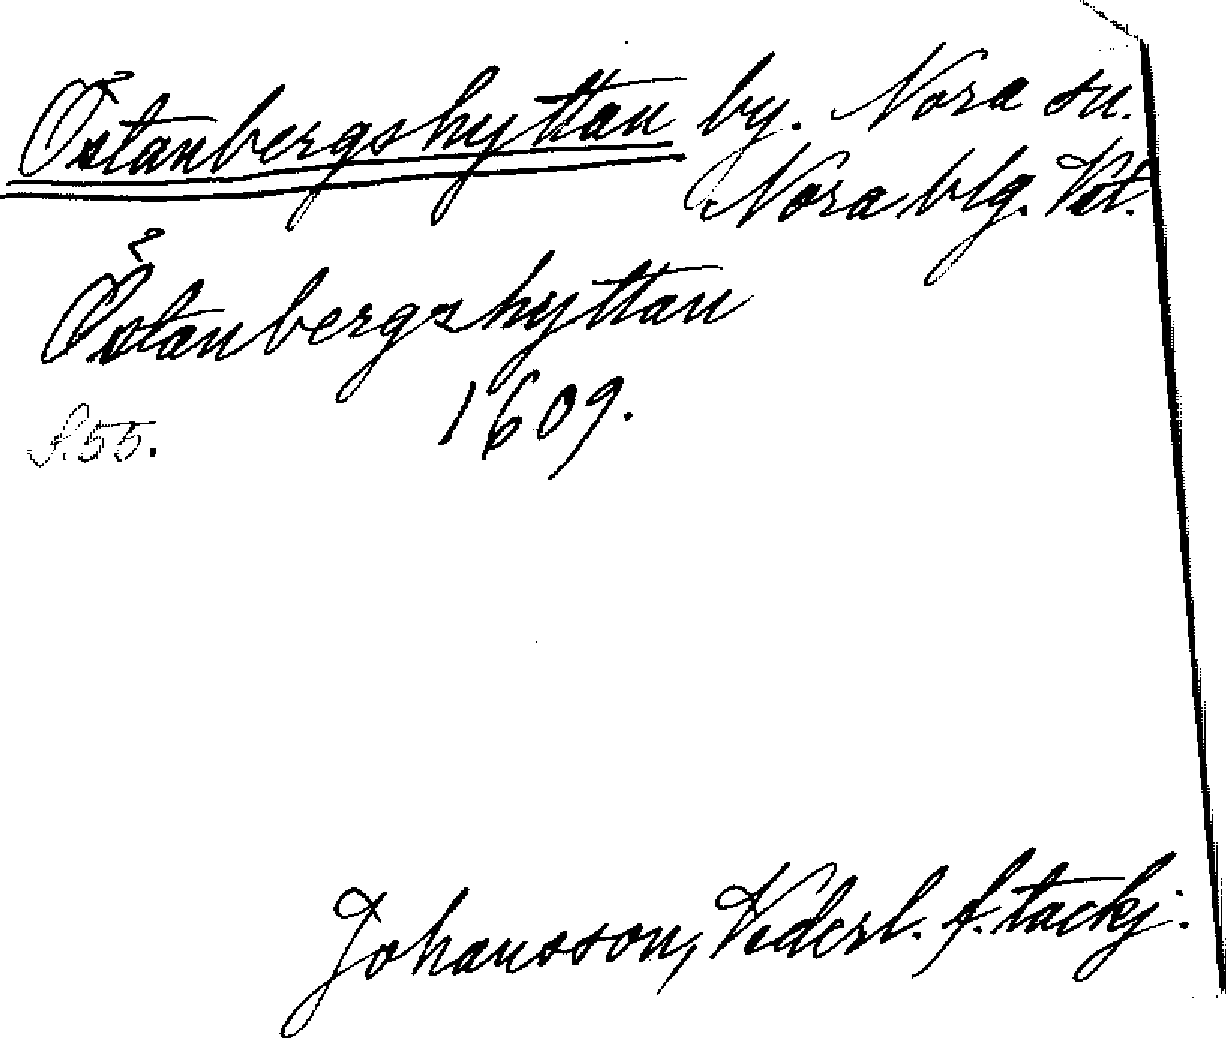 Östanbergshyttan by. Nora sn.
Nora blg. Vstm.
Östanbergshyttan
1609.
S. 55.
Johansson, Vederl. f. tackj.